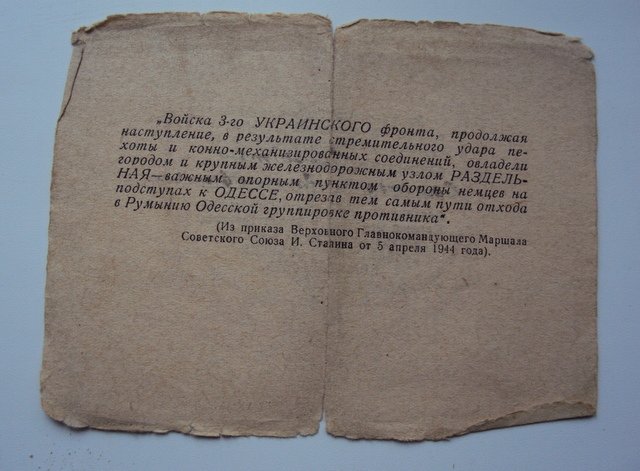 „Войска 3-го УКРАИНСКОГО фронта, продолжая
наступление, в результате стремительного удара пе-
хоты и конно-механизированных соединений, овладели
городом и крупным железнодорожным узлом РАЗДЕЛЬ-
НАЯ—важным опорным пунктом обороны немцев на
подступах к ОДЕССЕ, отрезав тем самым пути отхода
в Румынию Одесской группировке противника“.
(Из приказа Верховного Главнокомандующего Маршала
Советского Союза И. Сталина от 5 апреля 1944 года).